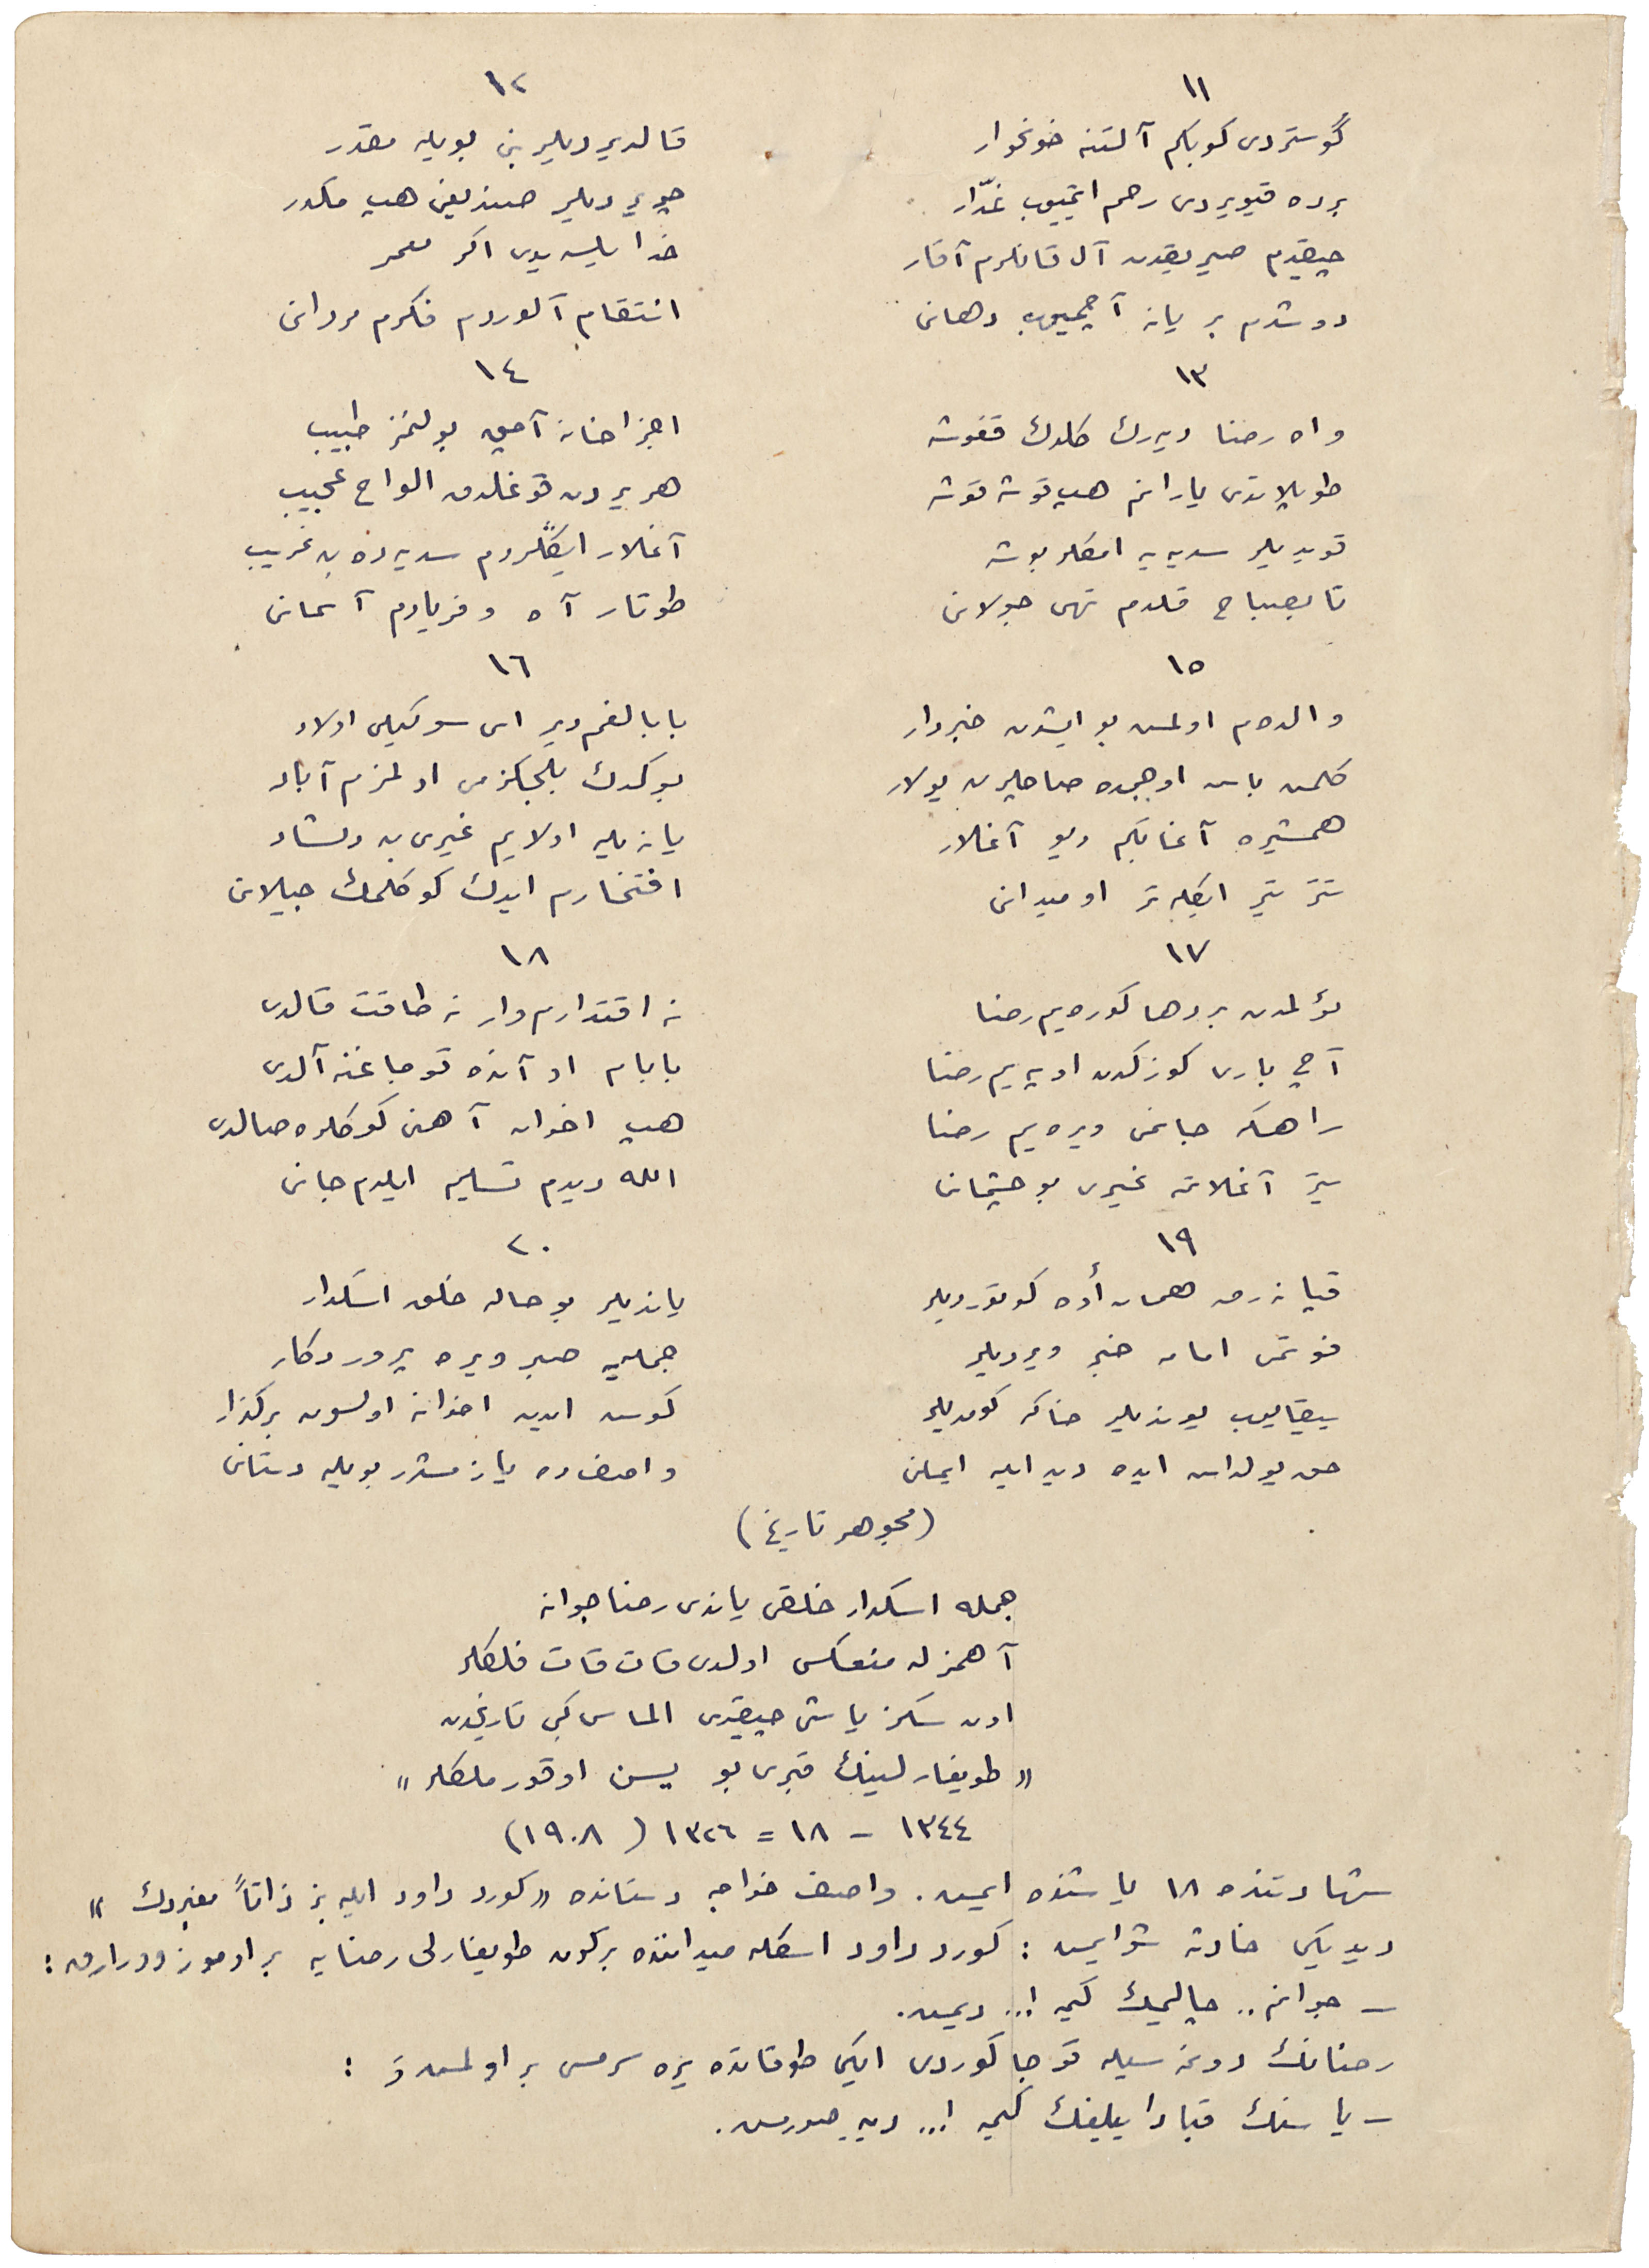 ١١
گوستردی كوبكم آلتنه خونخوار
برده قیویردی رحم ایتمیوب غدّار
چیقدم صیریقدن آل قانلرم آقار
دوشدم بر یانه آچمیوب دهانی
١٢
قالدیردیلر بنی بویله مقدر
چویردیلر هپ مكدر
خدا یلسه‌یدی اكر معمر
انتقام آلوردم فكرم مردانی
١٣
واه رضا دیه‌رك كلدك قغوشه
طوپلاندی یارانم هپ قوشه قوشه
قویدیلر سدیه‌یه امكلر بوشه
تا بصباح قلدم تهی جولانی
١٤
اجزاخانه آچیق بولنمز طبیب
هر یردن قوغلدق الواح عجیب
آغلار ایكلردم سدیه‌ده بن غریب
طوتار آه و فریادم آسمانی
١٥
والده‌م اولمسن بو ایشدن خبردار
كلمسن باش اوجمده صاچلرین یولار
همشیره آغابكم دیو آغلار
تتر تتر ایكلەتر او میدانی
١٦
بابالغم دیر ای سوكیلی اولاد
بو كدك بلجكزمی اولمزم آباد
یانه‌یله اولایم غیری بن دلشاد
افتخارم ایدك كوكلمك جیلانی
١٧
ئولمدن بر دها كوره‌یم رضا
آچ باری كوزكدن اوپه‌یم رضا
راهكه جانمی ویره‌یم رضا
یتر آغلاتمه غیری بو چشمانی
١٨
نه اقتدارم وار نه طاقت قالدی
بابام او آنده قوجاغنه آلدی
هپ اخوان آهنی كوكلره صالدی
الله دیدم تسلیم ایلدم جانی
١٩
قپانه‌رق همان أوه كوتوردیلر
فوتمی امامه خبر ویردیلر
ییقایوب یوندیلر خاكه كومدیلر
حق یولداش ایده دیدیلر ایمانی
٢٠
یاندیلر بو حاله خلق اسكدار
جمله‌یه صبر ویره پروردكار
كوش ایدین اخوانه اولسون بركذار
واصف ده یازمشدر بویله دستانی
(مجوهر تاریخ)
جمله اسكدار خلقی یاندی رضا جوانه
آهمزله منعكس اولدی قات قات فلكلر
اون سكز یاشی چیقدی الماس كبی تاریخدن
« طویغارلینك قبری بو یسن اوقور ملكلر »
١٣٤٤ – ١٨ = ١٣٢٦ (١٩٠٨)
شهادتنده ١٨ یاشنده ایمش. واصف خواجه دستانده «كورد داود ایله بز ذاتاً مغبردك»
دیدیكی حادثه شو ایمش : كورد داود اسكله میداننده بركون طویغارلی رضایه بر اوموز وورارق :
– جوانم.. چالیمك كیمه !.. دیمش.
رضانك دونمه‌سیله قوجا كوردی ایكی طوقاتده یره سرمسی بر اولمش و :
– یا سنك قبادایلیغك كیمه !... دیه صورمش.